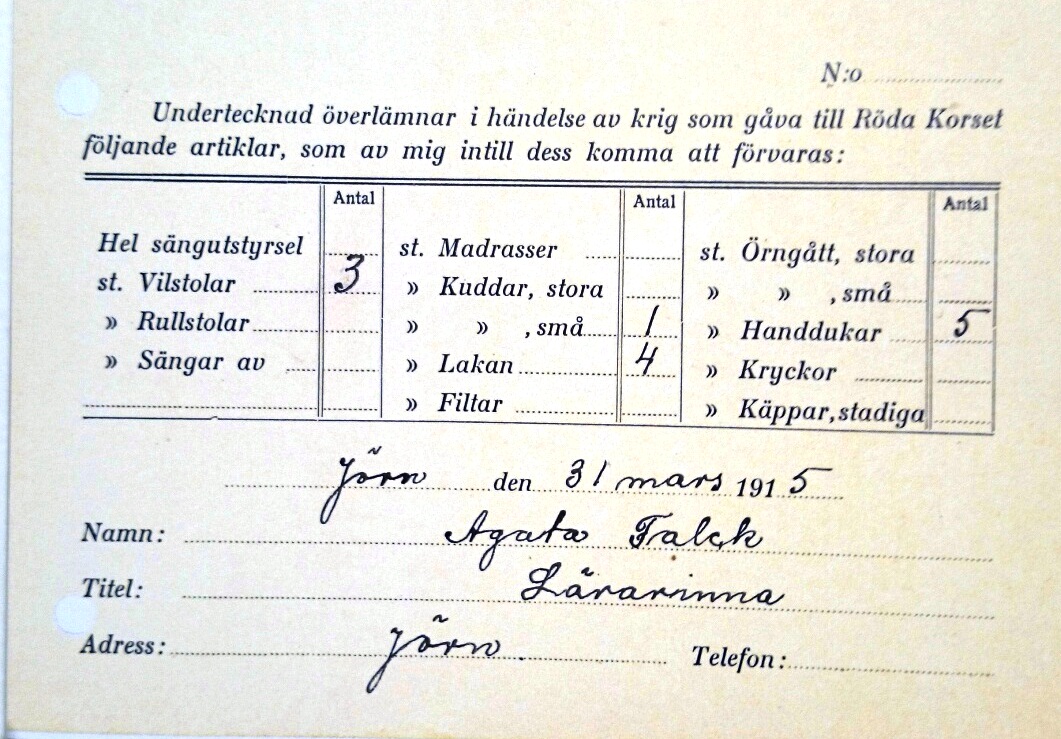 N:o
Undertecknad överlämnar i händelse av krig som gåva till Röda Korset
följande artiklar, som av mig intill dess komma att förvaras:
Antal Antal Antal
Hel sängutstyrsel st. Madrasser st. Örngått, stora
st. Vilstolar 3 » Kuddar, stora » » , små
» Rullstolar » » , små 1 » Handdukar 5
» Sängar av » Lakan 4 » Kryckor
» Filtar » Käppar, stadiga
Jörn den 31 mars 1915
Namn: Agata Falck
Titel: Lärarinna
Adress: Jörn. Telefon: